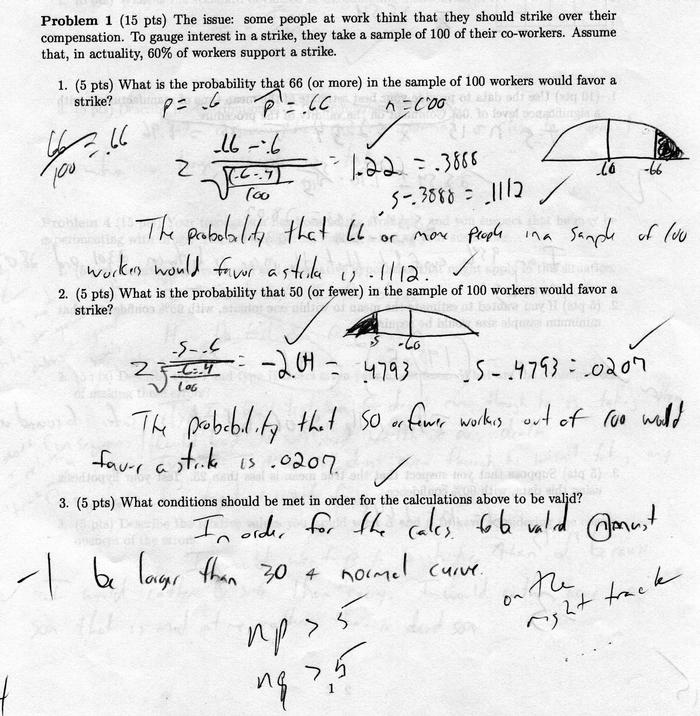 Problem 1 (15 pts) The issue: some people at work think that they should strike over their
compensation. To gauge interest in a strike, they take a sample of 100 of their co-workers. Assume
that, in actuality, 60% of workers support a strike.
1. (5 pts) What is the probability that 66 (or more) in the sample of 100 workers would favor a
strike?
p = .6 p̂ = .66 n = 100
66/100 = .66
z .66 - .6 / √(.6 · .4 / 100) = 1.22 = .3888
.5 - .3888 = .1112 ✓
.60 .66
The probability that 66 or more people in a sample of 100
workers would favor a strike is .1112. ✓
2. (5 pts) What is the probability that 50 (or fewer) in the sample of 100 workers would favor a
strike?
.5 .60
z .5 - .6 / √(.6 · .4 / 100) = -2.04 = .4793 .5 - .4793 = .0207
The probability that 50 or fewer workers out of 100 would
favor a strike is .0207 ✓
3. (5 pts) What conditions should be met in order for the calculations above to be valid?
In order for the calcs. to be valid n must
-1 be larger than 30 + normal curve.
on the
right track
np > 5
nq > 5
1